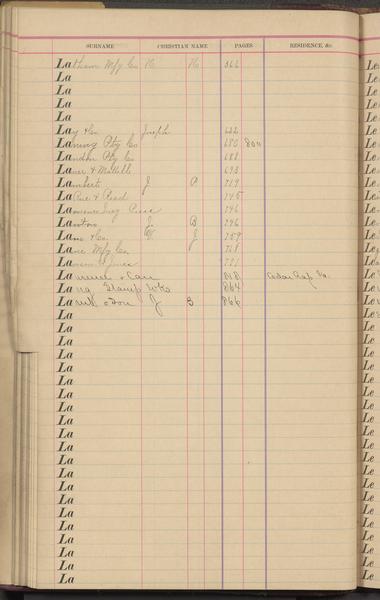 SURNAME CHRISTIAN NAME PAGES RESIDENCE, &c.
Latham Mfg Co H. H. 366
La
La
La
La
Lay & Co Joseph 632
Laning Ptg Co 680 800
Landon Ptg Co 688
La & 693
Lambert J P 719
La & Read 745
Lawrence 746
Lawton J. B 746
Lane & Co. W J 759
Lane Mfg Co. 768
La 771
La & Carr 818 Cedar Rap Ia.
Lang Stamp Wks 864
Lank & Son J B 866
La
La
La
La
La
La
La
La
La
La
La
La
La
La
La
La
La
La
La
La
La
Le
Le
Le
Le
Le
Le
Le
Le
Le
Le
Le
Le
Le
Le
Le
Le
Le
Le
Le
Le
Le
Le
Le
Le
Le
Le
Le
Le
Le
Le
Le
Le
Le
Le
Le
Le
Le
Le
Le
Le